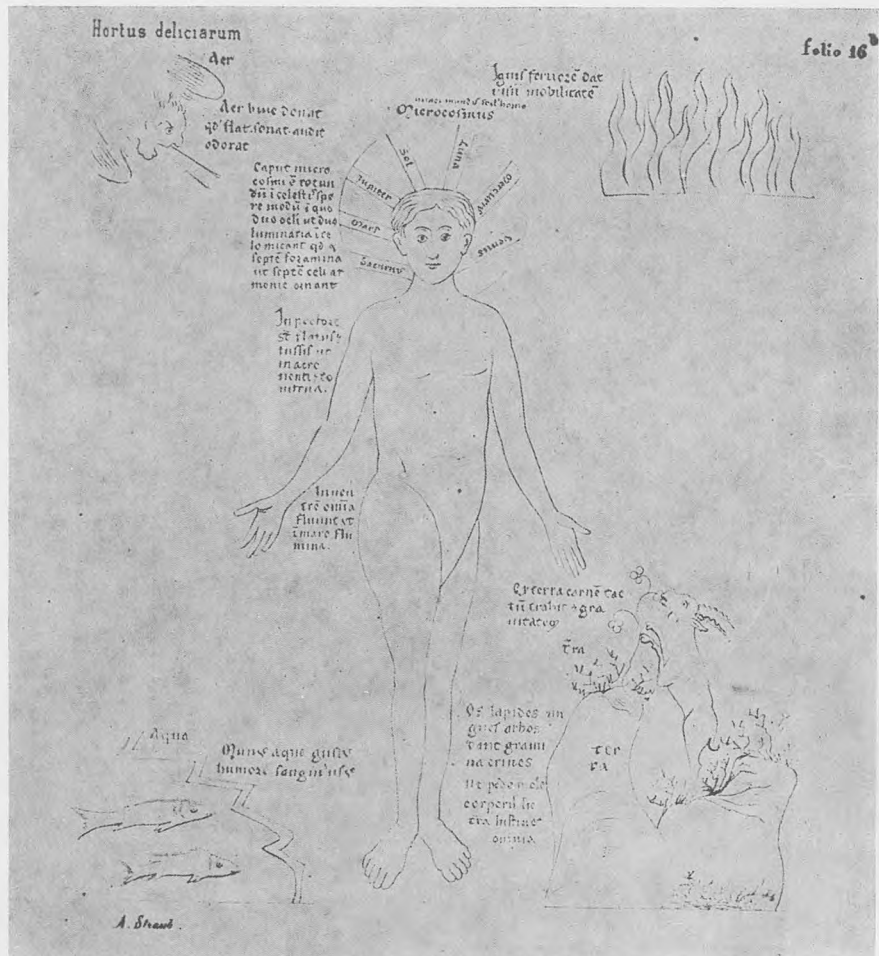 Hortus deliciarum
folio 16b
Aer
Aer huic donat
qd flat. sonat. audit
odorat
Ignis fervorē dat
mobilitatē
Microcosmus
Sol
Luna
Jupiter
Mars
Saturnus
Mercurius
Venus
Caput micro
cosmi ē rotun
dū ī celestis spe
re modū ī quo
duo ocli ut duo
luminaria ī ce
lo micant qd
septē foramina
ut septē celi ar
monie ornant
In pectore
st̄ flatus
tussis ut
in aere
venti to
nitrua.
In ven
trē om̄ia
fluunt ut
ī mare flu
mina.
terra carnē tac
tū trahit gra
vitatē
t̄ra
ter
ra
Os lapides un
gues arbos
dant grami
na crines
Ut pedes
corporis
omnia
Aqua
Munus aque gustus
humor sanguis
A. Straub.